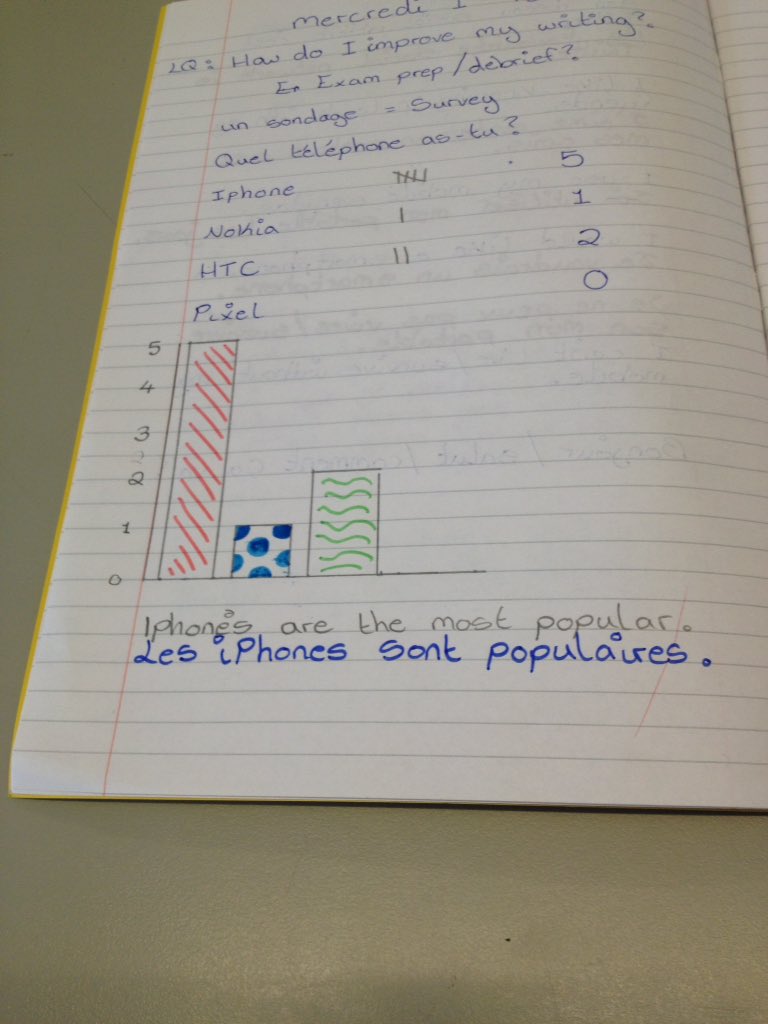 mercredi 1
LQ: How do I improve my writing?.
Exam prep/débrief?
un sondage = Survey
Quel téléphone as-tu?
Iphone 5
Nokia 1
HTC 2
Pixel 0
5
4
3
2
1
0
Iphones are the most popular.
Les iPhones sont populaires.